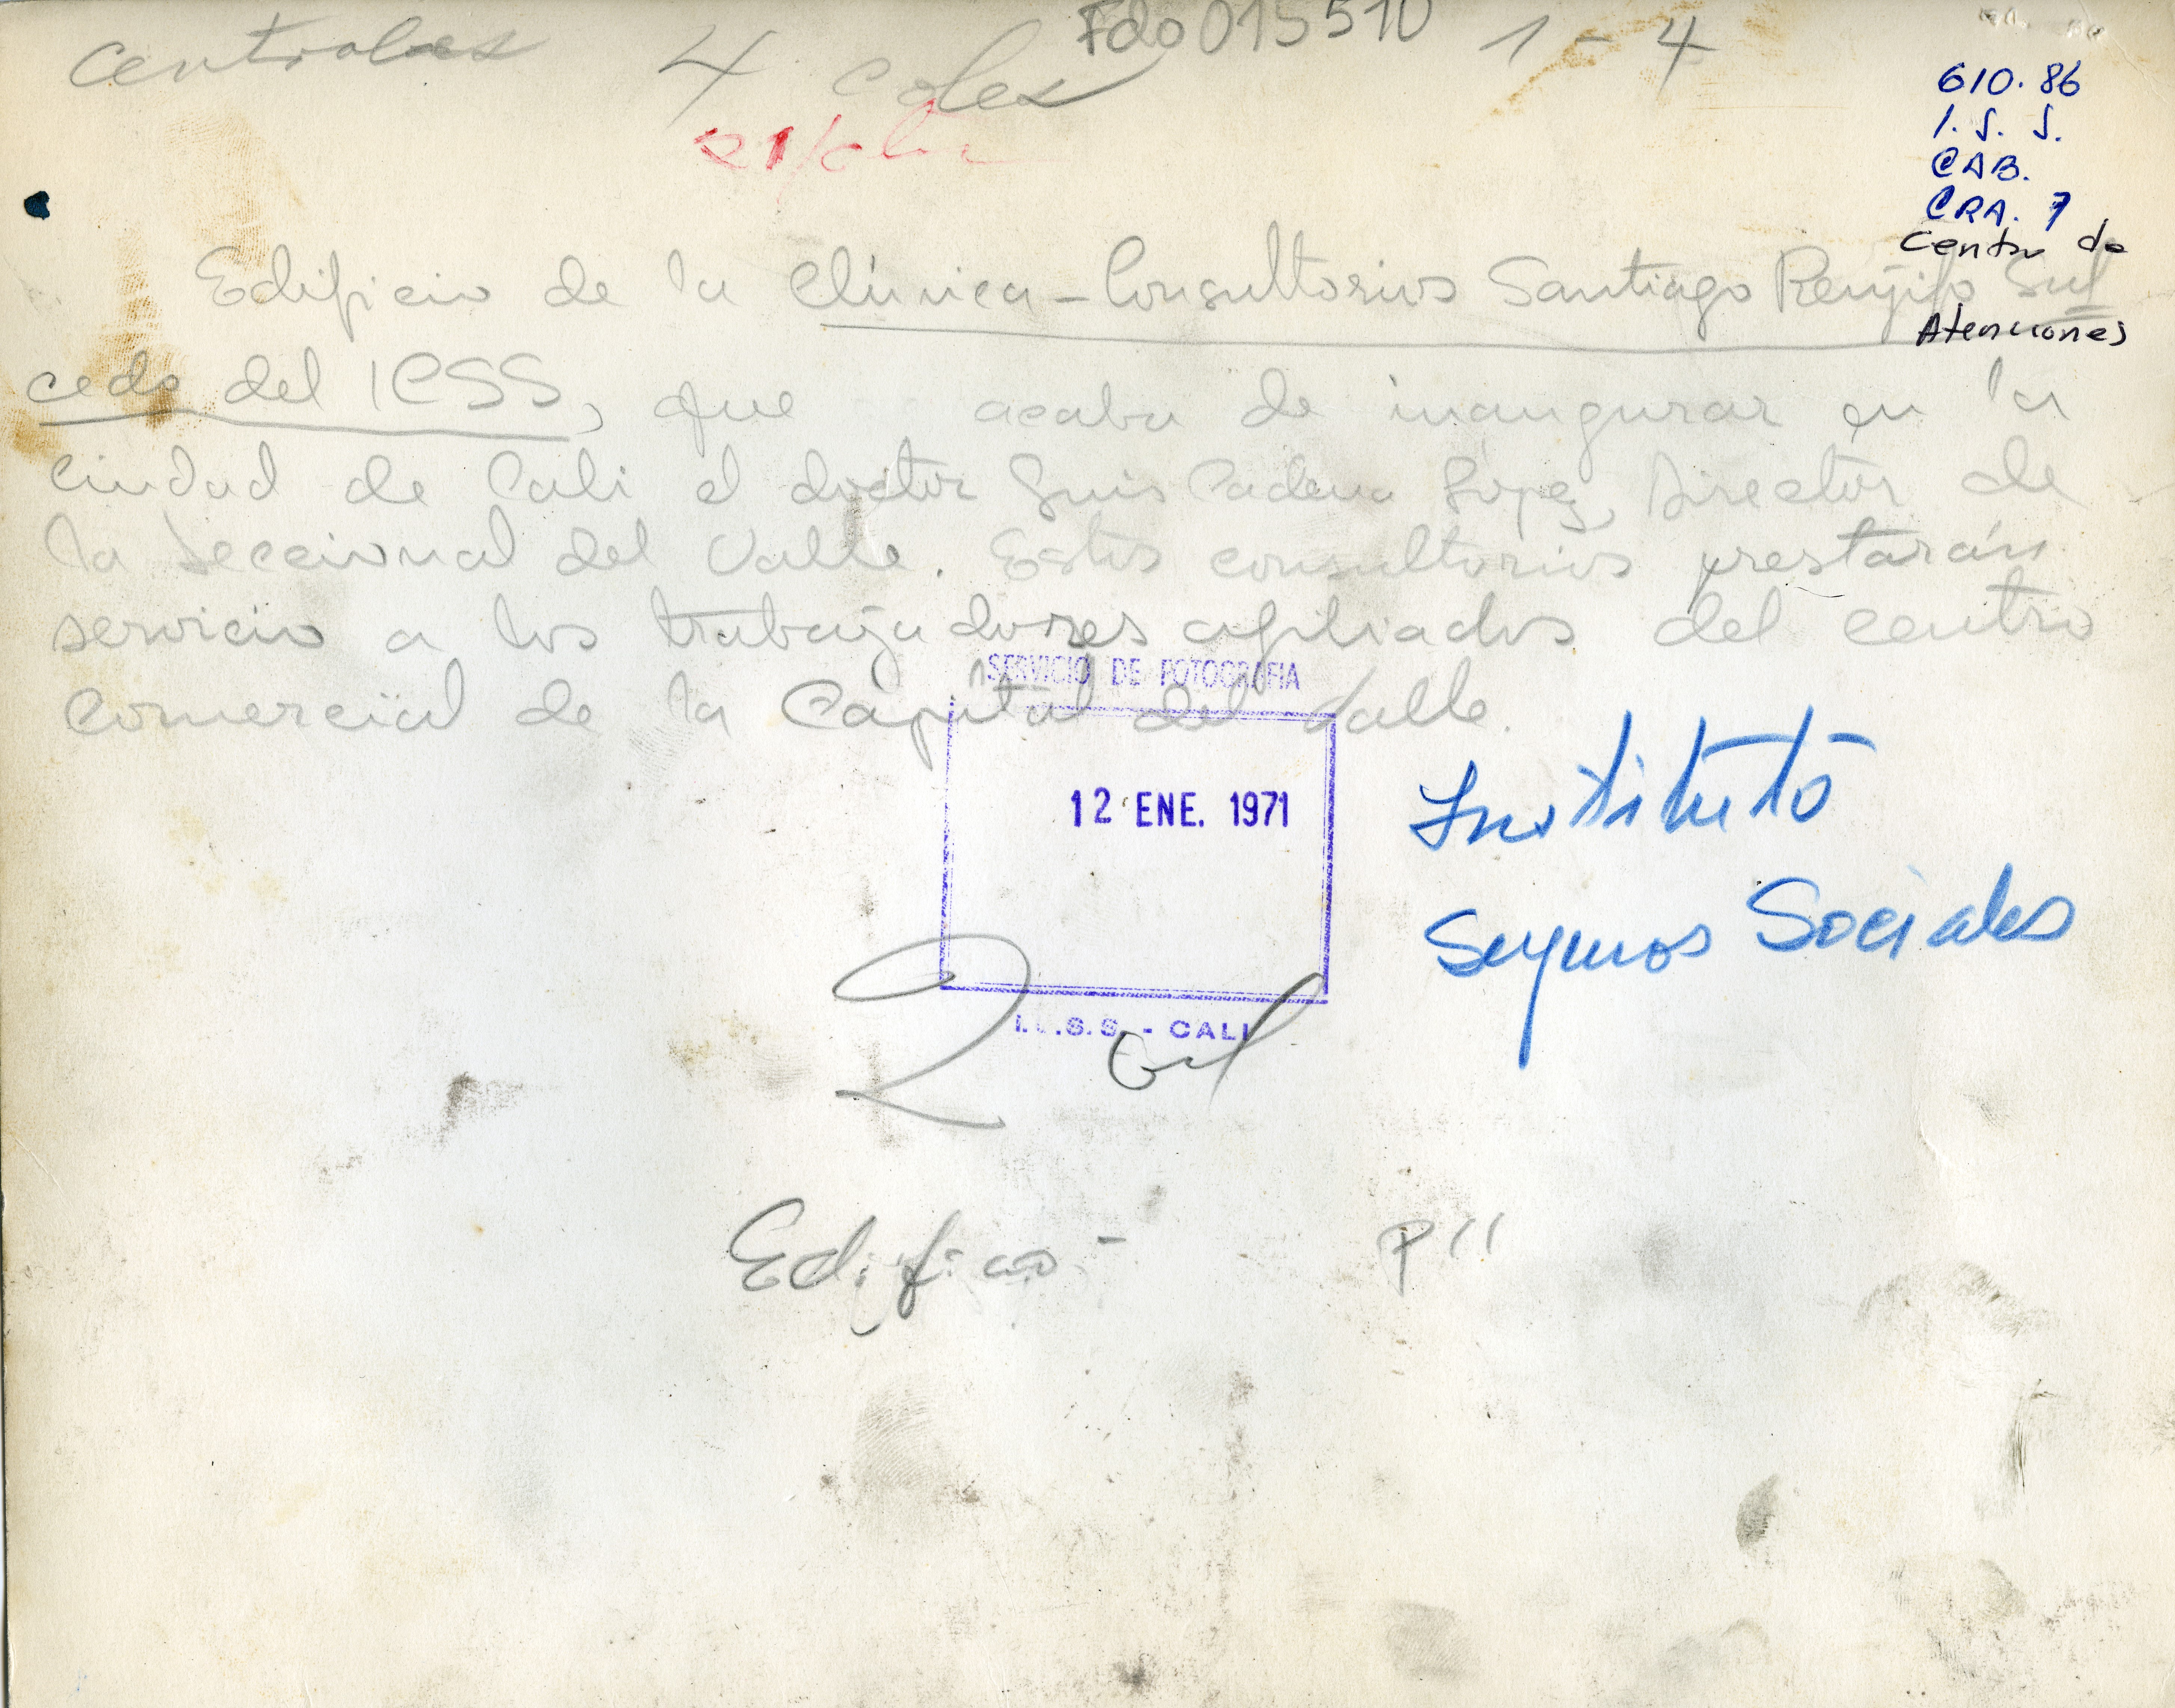 Fdo 015510 1-4
Centrales 4 coles
610.86
I.S.S.
CAB.
CRA. 7
Centro de
Atenciones
Edificio de la Clínica-Consultorios Santiago Rengifo Sal
cedo del ICSS, que acaba de inaugurar en la
ciudad de Cali el doctor Luis Cadena Lopez, Director de
la Seccional del Valle. Estos consultorios prestarán
servicio a los trabajadores afiliados del centro
comercial de la Capital del Valle.
SERVICIO DE FOTOGRAFIA
12 ENE. 1971
I. .S.S. - CALI
Instituto
Seguros Sociales
2 col
Edificio - P11